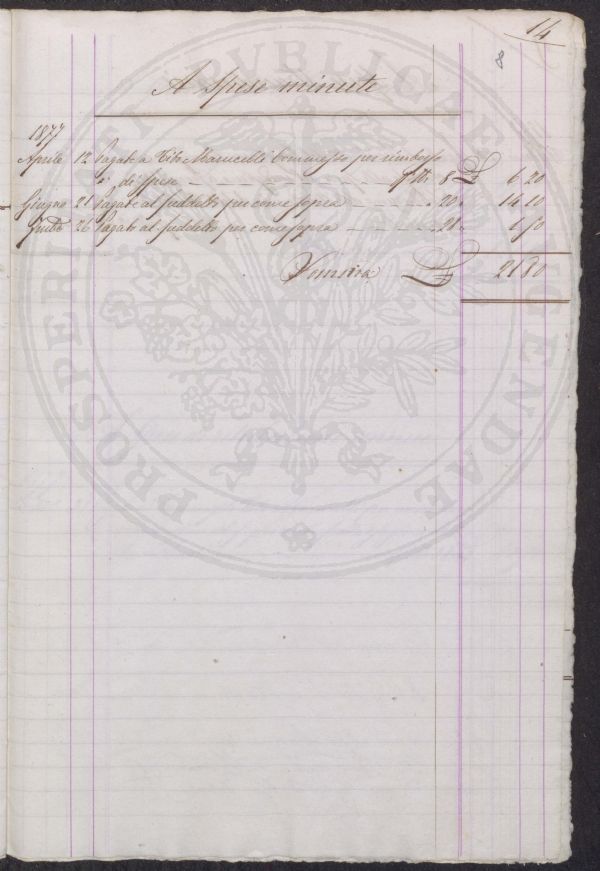 14
8
A Spese minute
1877
Aprile 12 Pagate a Tito Marucelli Commesso per rimborso
di spese 8 £ 6 20
Giugno 21 Pagate al suddetto per come sopra 20 14 10
26 Pagate al suddetto per come sopra 21 1 50
Somma £ 21 80
PROSPERITATI PVBLICAE AVGENDAE